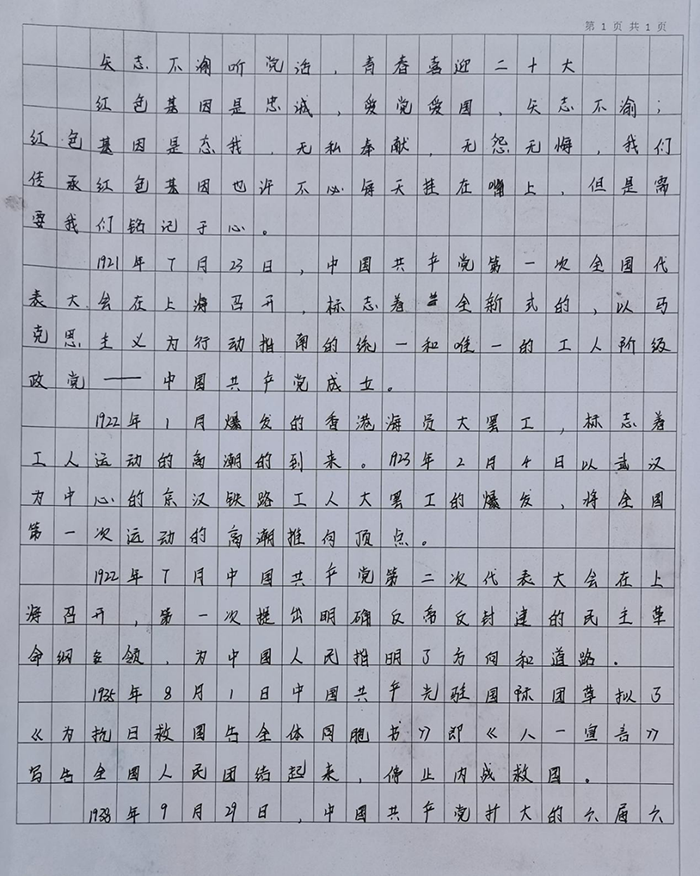 第 1 页 共 1 页
矢志不渝听党话，青春喜迎二十大
红色基因是忠诚，爱党爱国，矢志不渝；
红色基因是忘我，无私奉献，无怨无悔，我们
传承红色基因也许不必每天挂在嘴上，但是需
要我们铭记于心。
1921年7月23日，中国共产党第一次全国代
表大会在上海召开，标志着全新式的，以马
克思主义为行动指南的统一和唯一的工人阶级
政党——中国共产党成立。
1922年1月爆发的香港海员大罢工，标志着
工人运动的高潮的到来。1923年2月4日以武汉
为中心的京汉铁路工人大罢工的爆发，将全国
第一次运动的高潮推向顶点。
1922年7月中国共产党第二次代表大会在上
海召开，第一次提出明确反帝反封建的民主革
命纲领，为中国人民指明了方向和道路．
1935年8月1日中国共产党驻国际团草拟了
《为抗日救国告全体同胞书》即《八一宣言》
写告全国人民团结起来，停止内战救国。
1938年9月29日，中国共产党扩大的六届六